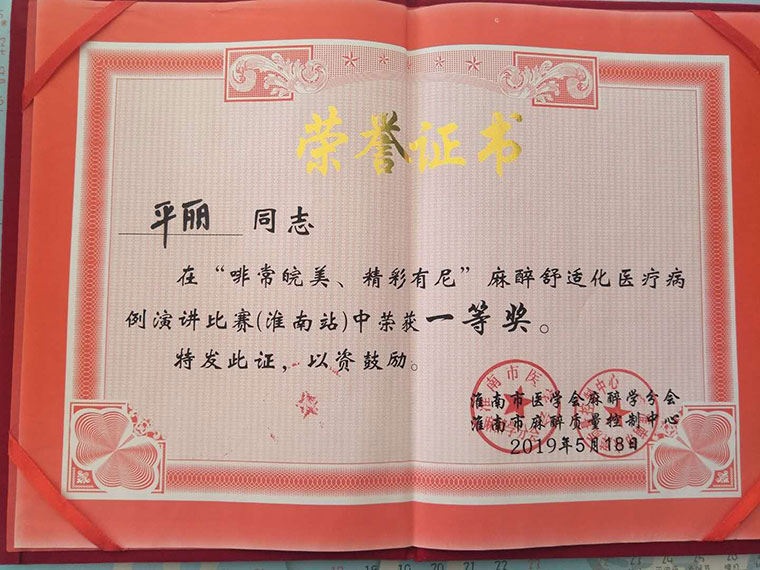 荣誉证书
平丽 同志
在“啡常皖美、精彩有尼”麻醉舒适化医疗病
例演讲比赛(淮南站)中荣获一等奖。
特发此证，以资鼓励。
淮南市医学会麻醉学分会
淮南市麻醉质量控制中心
2019年5月18日